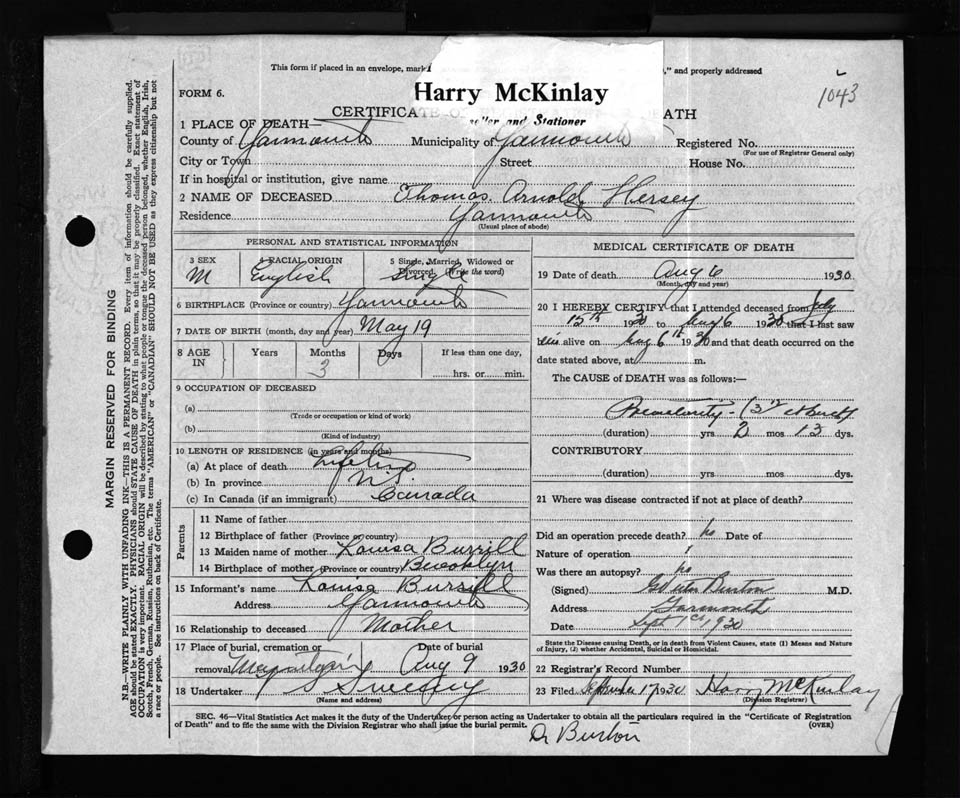 This form if placed in an envelope, mark ," and properly addressed
Harry McKinlay
1043
FORM 6.
CERTIFICATE O DEATH
eller and Stationer
1 PLACE OF DEATH—
County of Yarmouth Municipality of Yarmouth Registered No.
(For use of Registrar General only)
City or Town Street House No.
If in hospital or institution, give name
2 NAME OF DECEASED Thomas Arnold Hersey
Residence Yarmouth
(Usual place of abode)
MARGIN RESERVED FOR BINDING
N.B.—WRITE PLAINLY WITH UNFADING INK—THIS IS A PERMANENT RECORD. Every item of information should be carefully supplied.
AGE should be stated EXACTLY. PHYSICIANS should STATE CAUSE OF DEATH in plain terms, so that it may be properly classified. Exact statement of
OCCUPATION is very important. RACIAL ORIGIN will be described by stating to what people or tongue the deceased person belonged, whether English, Irish,
Scotch, French, German, Russian, Ruthenian, etc. The terms "AMERICAN" or "CANADIAN" SHOULD NOT BE USED as they express citizenship but not
a race or people. See instructions on back of Certificate.
PERSONAL AND STATISTICAL INFORMATION
3 SEX 4 RACIAL ORIGIN 5 Single, Married, Widowed or
Divorced (Write the word)
M English Single
6 BIRTHPLACE (Province or country) Yarmouth
7 DATE OF BIRTH (month, day and year) May 19
8 AGE IN Years Months Days If less than one day,
3 hrs. or min.
9 OCCUPATION OF DECEASED
(a)
(Trade or occupation or kind of work)
(b)
(Kind of industry)
10 LENGTH OF RESIDENCE (in years and months)
(a) At place of death Life time
(b) In province
(c) In Canada (if an immigrant) Canada
Parents
11 Name of father
12 Birthplace of father (Province or country)
13 Maiden name of mother Louisa Burrill
14 Birthplace of mother (Province or country) Brooklyn
15 Informant's name Louisa Burrill
Address Yarmouth
16 Relationship to deceased Mother
17 Place of burial, cremation or Date of burial
removal Aug 9 1930
18 Undertaker Sweeney
(Name and address)
MEDICAL CERTIFICATE OF DEATH
19 Date of death Aug 6 1930
(Month, day and year)
20 I HEREBY CERTIFY that I attended deceased from July
15th 1930 to Aug 6 1930 that I last saw
him alive on Aug 6th 1930 and that death occurred on the
date stated above, at m.
The CAUSE of DEATH was as follows:—
Prematurity - (3 at birth)
(duration) yrs 2 mos 13 dys.
CONTRIBUTORY
(duration) yrs mos dys.
21 Where was disease contracted if not at place of death?
Did an operation precede death? no Date of
Nature of operation
Was there an autopsy? no
(Signed) Burton M.D.
Address Yarmouth
Date Sept 1930
State the Disease causing Death, or in death from Violent Causes, state (1) Means and Nature
of Injury, (2) whether Accidental, Suicidal or Homicidal.
22 Registrar's Record Number
23 Filed September 17 1930 Harry McKinlay
(Division Registrar)
SEC. 46—Vital Statistics Act makes it the duty of the Undertaker or person acting as Undertaker to obtain all the particulars required in the "Certificate of Registration
of Death" and to file the same with the Division Registrar who shall issue the burial permit. (OVER)
Dr Burton